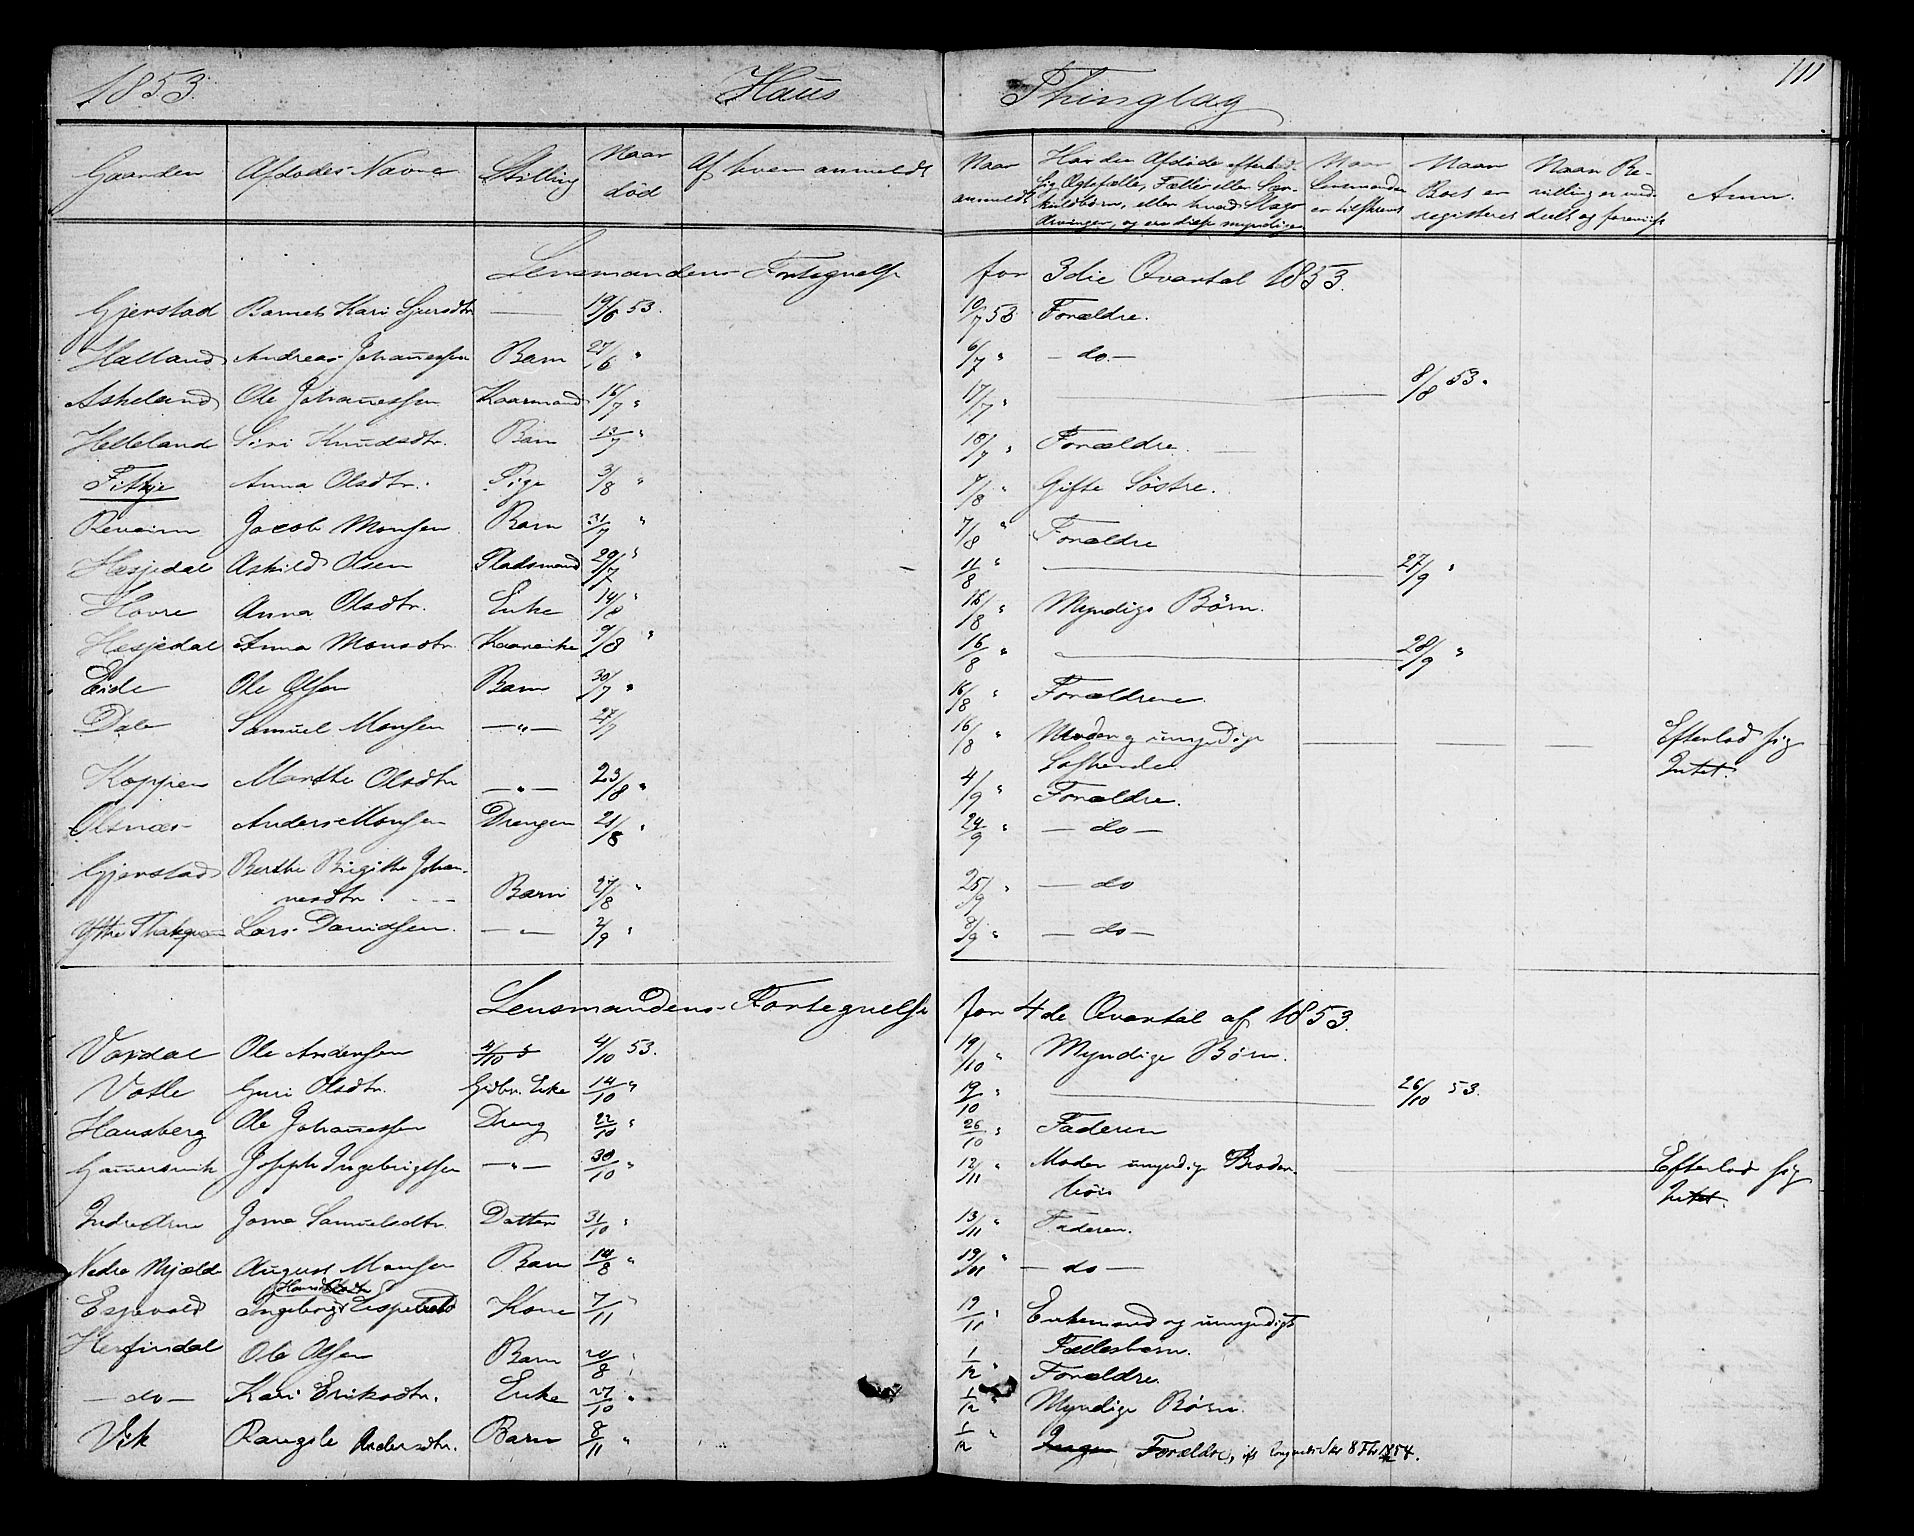 1853. Haus Thinglag 111
Gaarden | Afdødes Navne | Stilling | Naar død | Af hvem anmeldt | Naar anmeldt | Har den Afdøde efterladt sig Ægtefælle, Fælles eller Særkuldbørn, eller hvad Slags Arvinger, og ere disse myndige | Naar Lensmanden er tilskrevet | Naar Boet er registeret | Naar Bevilling er meddeelt og forevist | Anm.
Lensmandens Fortegnelse for 3die Qvartal 1853.
Gjerstad | Barnet Kari Sjursdtr | — | 19/6 53. | 10/7 53 | Forældre.
Halland | Andreas Johannessen | Barn | 27/6 " | 6/7 " | — do. —
Askeland | Ole Johannessen | Kaarmand | 16/7 " | 17/7 " | — | 8/8 53.
Helleland | Siri Knudsdtr. | Barn | 13/7 " | 18/7 " | Forældre.
Fitkje | Anna Olsdtr. | Pige | 3/8 " | 7/8 " | Gifte Søstre.
Reveim | Jacob Monsen | Barn | 31/7 " | 7/8 " | Forældre
Hesjedal | Askild Olsen | Pladsmand | 29/7 " | 11/8 " | — | 27/9 "
Hovre | Anna Olsdtr. | Enke | 14/8 " | 16/8 " | Myndige Børn.
Hesjedal | Anna Monsdtr. | Kaarenke | 9/8 " | 16/8 " | — | 28/9 "
Eide | Ole Olsen | Barn | 30/7 " | 16/8 " | Forældrene.
Dale | Samuel Monsen | — " — | 27/7 | 16/8 " | Moder og umyndige Søskende | — | Efterlod sig Intet.
Koppen | Marthe Olsdtr | — " — | 23/8 " | 4/9 " | Forældre.
Olsnæs | Anders Monsen | Drengen | 21/8 " | 24/9 " | — do —
Gjerstad | Berthe Birgithe Johannesdtr. | Barn | 27/8 " | 25/9 " | — do
Lars Davidsen. | — " — | 2/9 " | 3/9 " | — do —
Lensmandens Fortegnelse for 4de Qvartal af 1853.
Vardal | Ole Andersen | 4/10 " | 4/10 53. | 19/10 " | Myndige Børn.
Votle | Guri Olsdtr. | Gdbr. Enke | 14/10 " | 19/10 " | — | 26/10 53.
Hausberg | Ole Johannessen | Dreng | 22/10 " | 26/10 " | Faderen
Gamersvik | Joseph Ingebrigtsen | — " — | 30/10 " | 12/11 " | Moder umyndige Broderbørn | — | Efterlod sig Intet.
Indre Arne | Jorna Samuelsdtr. | Datter | 31/10 " | 13/11 " | Faderen.
Nedre Mjælde | August Monsen | Barn | 14/8 " | 19/11 " | — do —
Espevold | Ingeborg | Kone | 7/11 " | 19/11 " | Enkemand og umyndige Fællesbørn.
Herfindal | Ole Olsen | Barn | 20/8 " | 1/12 " | Forældre.
— do — | Kari Eriksdtr. | Enke | 27/10 " | 1/12 " | Myndige Børn.
Vik | Rangele Andersdtr. | Barn | 8/11 " | 1/12 " | Ingen Forældre,